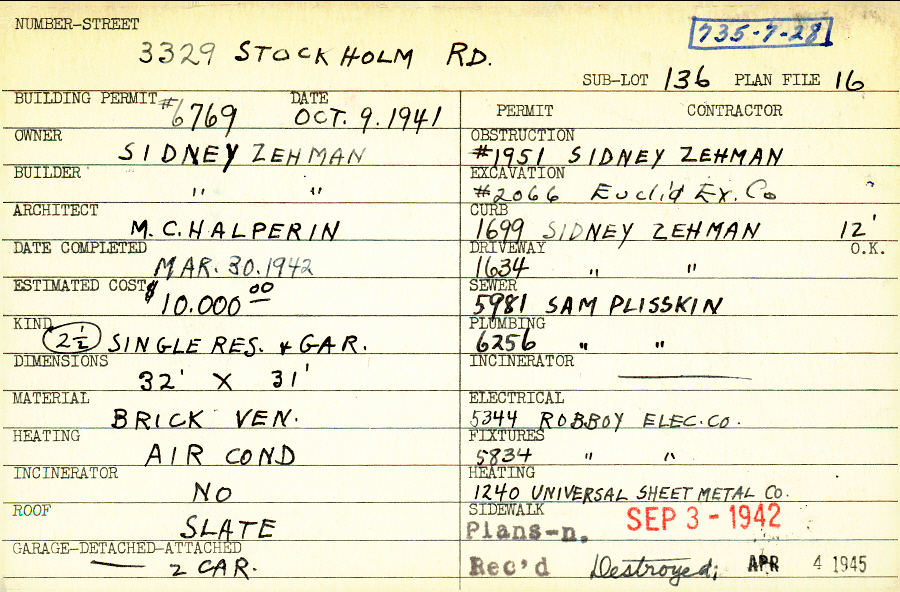 NUMBER-STREET
735-7-28
3329 STOCKHOLM RD.
SUB-LOT 136 PLAN FILE 16
BUILDING PERMIT #6769 DATE OCT. 9. 1941
OWNER
SIDNEY ZEHMAN
BUILDER
" "
ARCHITECT
M. C. HALPERIN
DATE COMPLETED
MAR. 30. 1942
ESTIMATED COST $10.000 00
KIND
2½ SINGLE RES. & GAR.
DIMENSIONS
32' X 31'
MATERIAL
BRICK VEN.
HEATING
AIR COND
INCINERATOR
NO
ROOF
SLATE
GARAGE-DETACHED-ATTACHED
— 2 CAR.
PERMIT CONTRACTOR
OBSTRUCTION
#1951 SIDNEY ZEHMAN
EXCAVATION
#2066 Euclid Ex. Co
CURB
1699 SIDNEY ZEHMAN 12'
DRIVEWAY O.K.
1634 " "
SEWER
5981 SAM PLISSKIN
PLUMBING
6256 " "
INCINERATOR
—
ELECTRICAL
5344 ROBBOY ELEC. CO.
FIXTURES
5834 " "
HEATING
1240 UNIVERSAL SHEET METAL CO.
SIDEWALK
SEP 3 - 1942
Plans-n.
Rec'd Destroyed; APR 4 1945